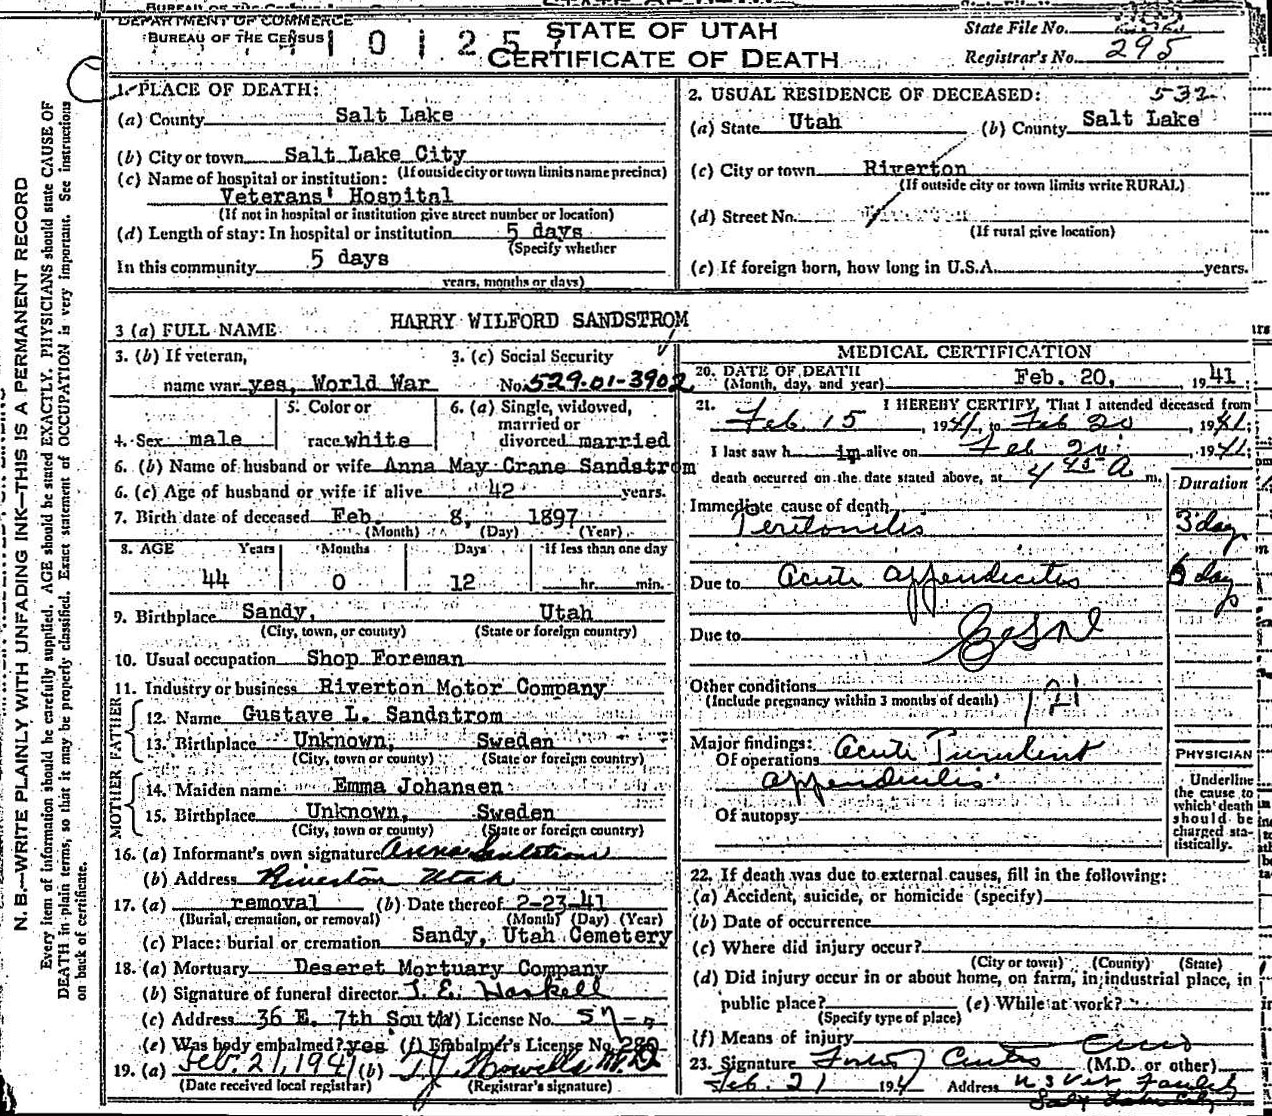 DEPARTMENT OF COMMERCE
BUREAU OF THE CENSUS
STATE OF UTAH
CERTIFICATE OF DEATH
State File No.
Registrar's No. 295
1. PLACE OF DEATH:
(a) County Salt Lake
(b) City or town Salt Lake City
(If outside city or town limits name precinct)
(c) Name of hospital or institution:
Veterans' Hospital
(If not in hospital or institution give street number or location)
(d) Length of stay: In hospital or institution 5 days
(Specify whether
In this community 5 days
years, months or days)
2. USUAL RESIDENCE OF DECEASED: 532
(a) State Utah (b) County Salt Lake
(c) City or town Riverton
(If outside city or town limits write RURAL)
(d) Street No.
(If rural give location)
(e) If foreign born, how long in U.S.A. years.
3 (a) FULL NAME HARRY WILFORD SANDSTROM
3. (b) If veteran,
name war yes, World War
3. (c) Social Security
No. 529-01-3902
4. Sex male
5. Color or
race white
6. (a) Single, widowed,
married or
divorced married
6. (b) Name of husband or wife Anna May Crane Sandstrom
6. (c) Age of husband or wife if alive 42 years.
7. Birth date of deceased Feb. 8, 1897
(Month) (Day) (Year)
8. AGE Years Months Days If less than one day
44 0 12 hr. min.
9. Birthplace Sandy, Utah
(City, town, or county) (State or foreign country)
10. Usual occupation Shop Foreman
11. Industry or business Riverton Motor Company
FATHER
12. Name Gustave L. Sandstrom
13. Birthplace Unknown, Sweden
(City, town, or county) (State or foreign country)
MOTHER
14. Maiden name Emma Johansen
15. Birthplace Unknown, Sweden
(City, town or county) (State or foreign country)
16. (a) Informant's own signature Anna Sandstrom
(b) Address Riverton Utah
17. (a) removal (b) Date thereof 2-23-41
(Burial, cremation, or removal) (Month) (Day) (Year)
(c) Place: burial or cremation Sandy, Utah Cemetery
18. (a) Mortuary Deseret Mortuary Company
(b) Signature of funeral director
(c) Address 36 E. 7th South License No.
(e) Was body embalmed? yes (f) Embalmer's License No. 280
19. (a) Feb. 21, 1941 (b) M.D.
(Date received local registrar) (Registrar's signature)
MEDICAL CERTIFICATION
20. DATE OF DEATH
(Month, day, and year) Feb. 20, 1941
21. I HEREBY CERTIFY, That I attended deceased from
Feb 15, 1941, to Feb 20, 1941;
I last saw him alive on Feb 20, 1941;
death occurred on the date stated above, at 4 45 A m.
Duration
Immediate cause of death
Peritonitis 3 day
Due to Acute appendicitis days
Due to
Other conditions
(Include pregnancy within 3 months of death) 121
Major findings:
Of operations Acute Purulent
appendicitis
Of autopsy
PHYSICIAN
Underline
the cause to
which death
should be
charged sta-
tistically.
22. If death was due to external causes, fill in the following:
(a) Accident, suicide, or homicide (specify)
(b) Date of occurrence
(c) Where did injury occur?
(City or town) (County) (State)
(d) Did injury occur in or about home, on farm, in industrial place, in
public place? (e) While at work?
(Specify type of place)
(f) Means of injury
23. Signature Curtis (M.D. or other)
Feb. 21 Address
Salt Lake City
N. B.—WRITE PLAINLY WITH UNFADING INK—THIS IS A PERMANENT RECORD
Every item of information should be carefully supplied. AGE should be stated EXACTLY. PHYSICIANS should state CAUSE OF
DEATH in plain terms, so that it may be properly classified. Exact statement of OCCUPATION is very important. See instructions
on back of certificate.